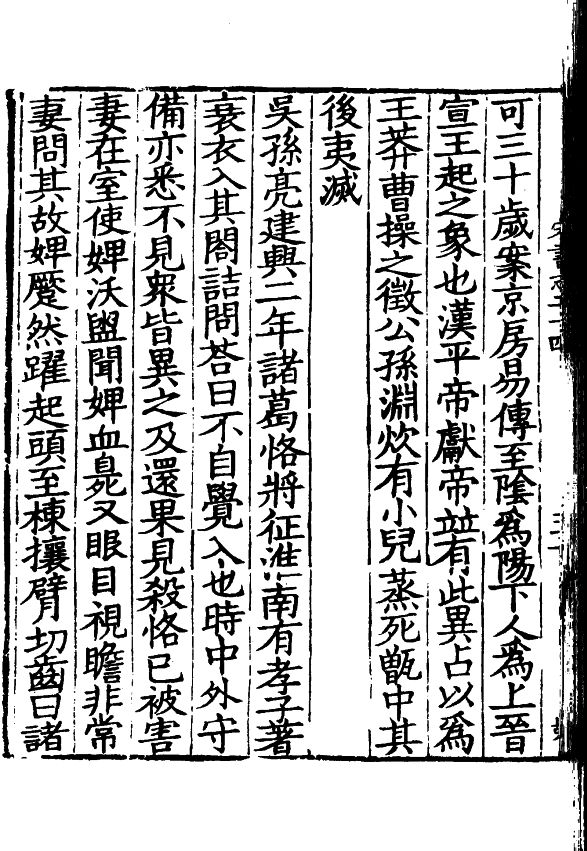 可三十歲案京房易傳至陰爲陽下人爲上晉
宣王起之象也漢平帝獻帝竝有此異占以爲
王莽曹操之徵公孫淵炊有小兒蒸死甑中其
後夷滅
吳孫亮建興二年諸葛恪將征淮南有孝子著
衰衣入其閤詰問荅曰不自覺入也時中外守
備亦悉不見眾皆異之及還果見殺恪已被害
妻在室使婢沃盥聞婢血臰又眼目視瞻非常
妻問其故婢蹷然躍起頭至棟攘臂切齒曰諸